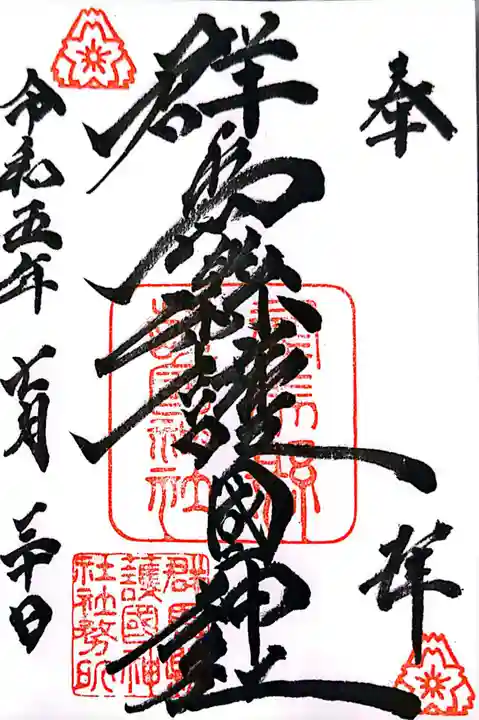 奉拝
群馬縣護國神社
令和五年 七月 三十日
群馬縣
護國神社
群馬縣
護國神
社社務所